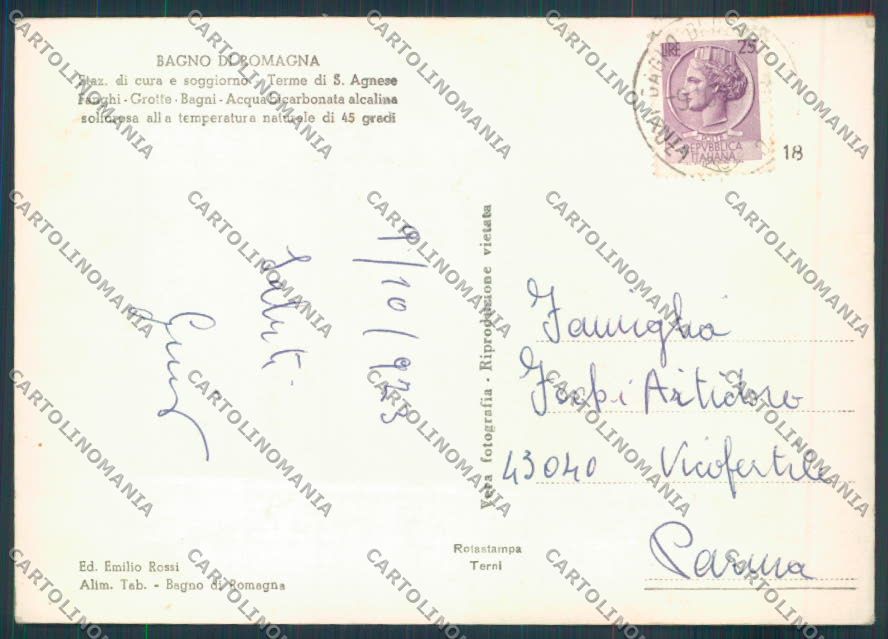 BAGNO DI ROMAGNA
Staz. di cura e soggiorno - Terme di S. Agnese
Fanghi - Grotte - Bagni - Acqua bicarbonata alcalina
solforosa alla temperatura naturale di 45 gradi
LIRE 25
POSTE
REPVBBLICA
ITALIANA
18
9/10/973
Saluti
Vera fotografia - Riproduzione vietata
Famiglia
Artidoro
43040 Vicofertile
Parma
Rotastampa
Terni
Ed. Emilio Rossi
Alim. Tab. - Bagno di Romagna
CARTOLINOMANIA